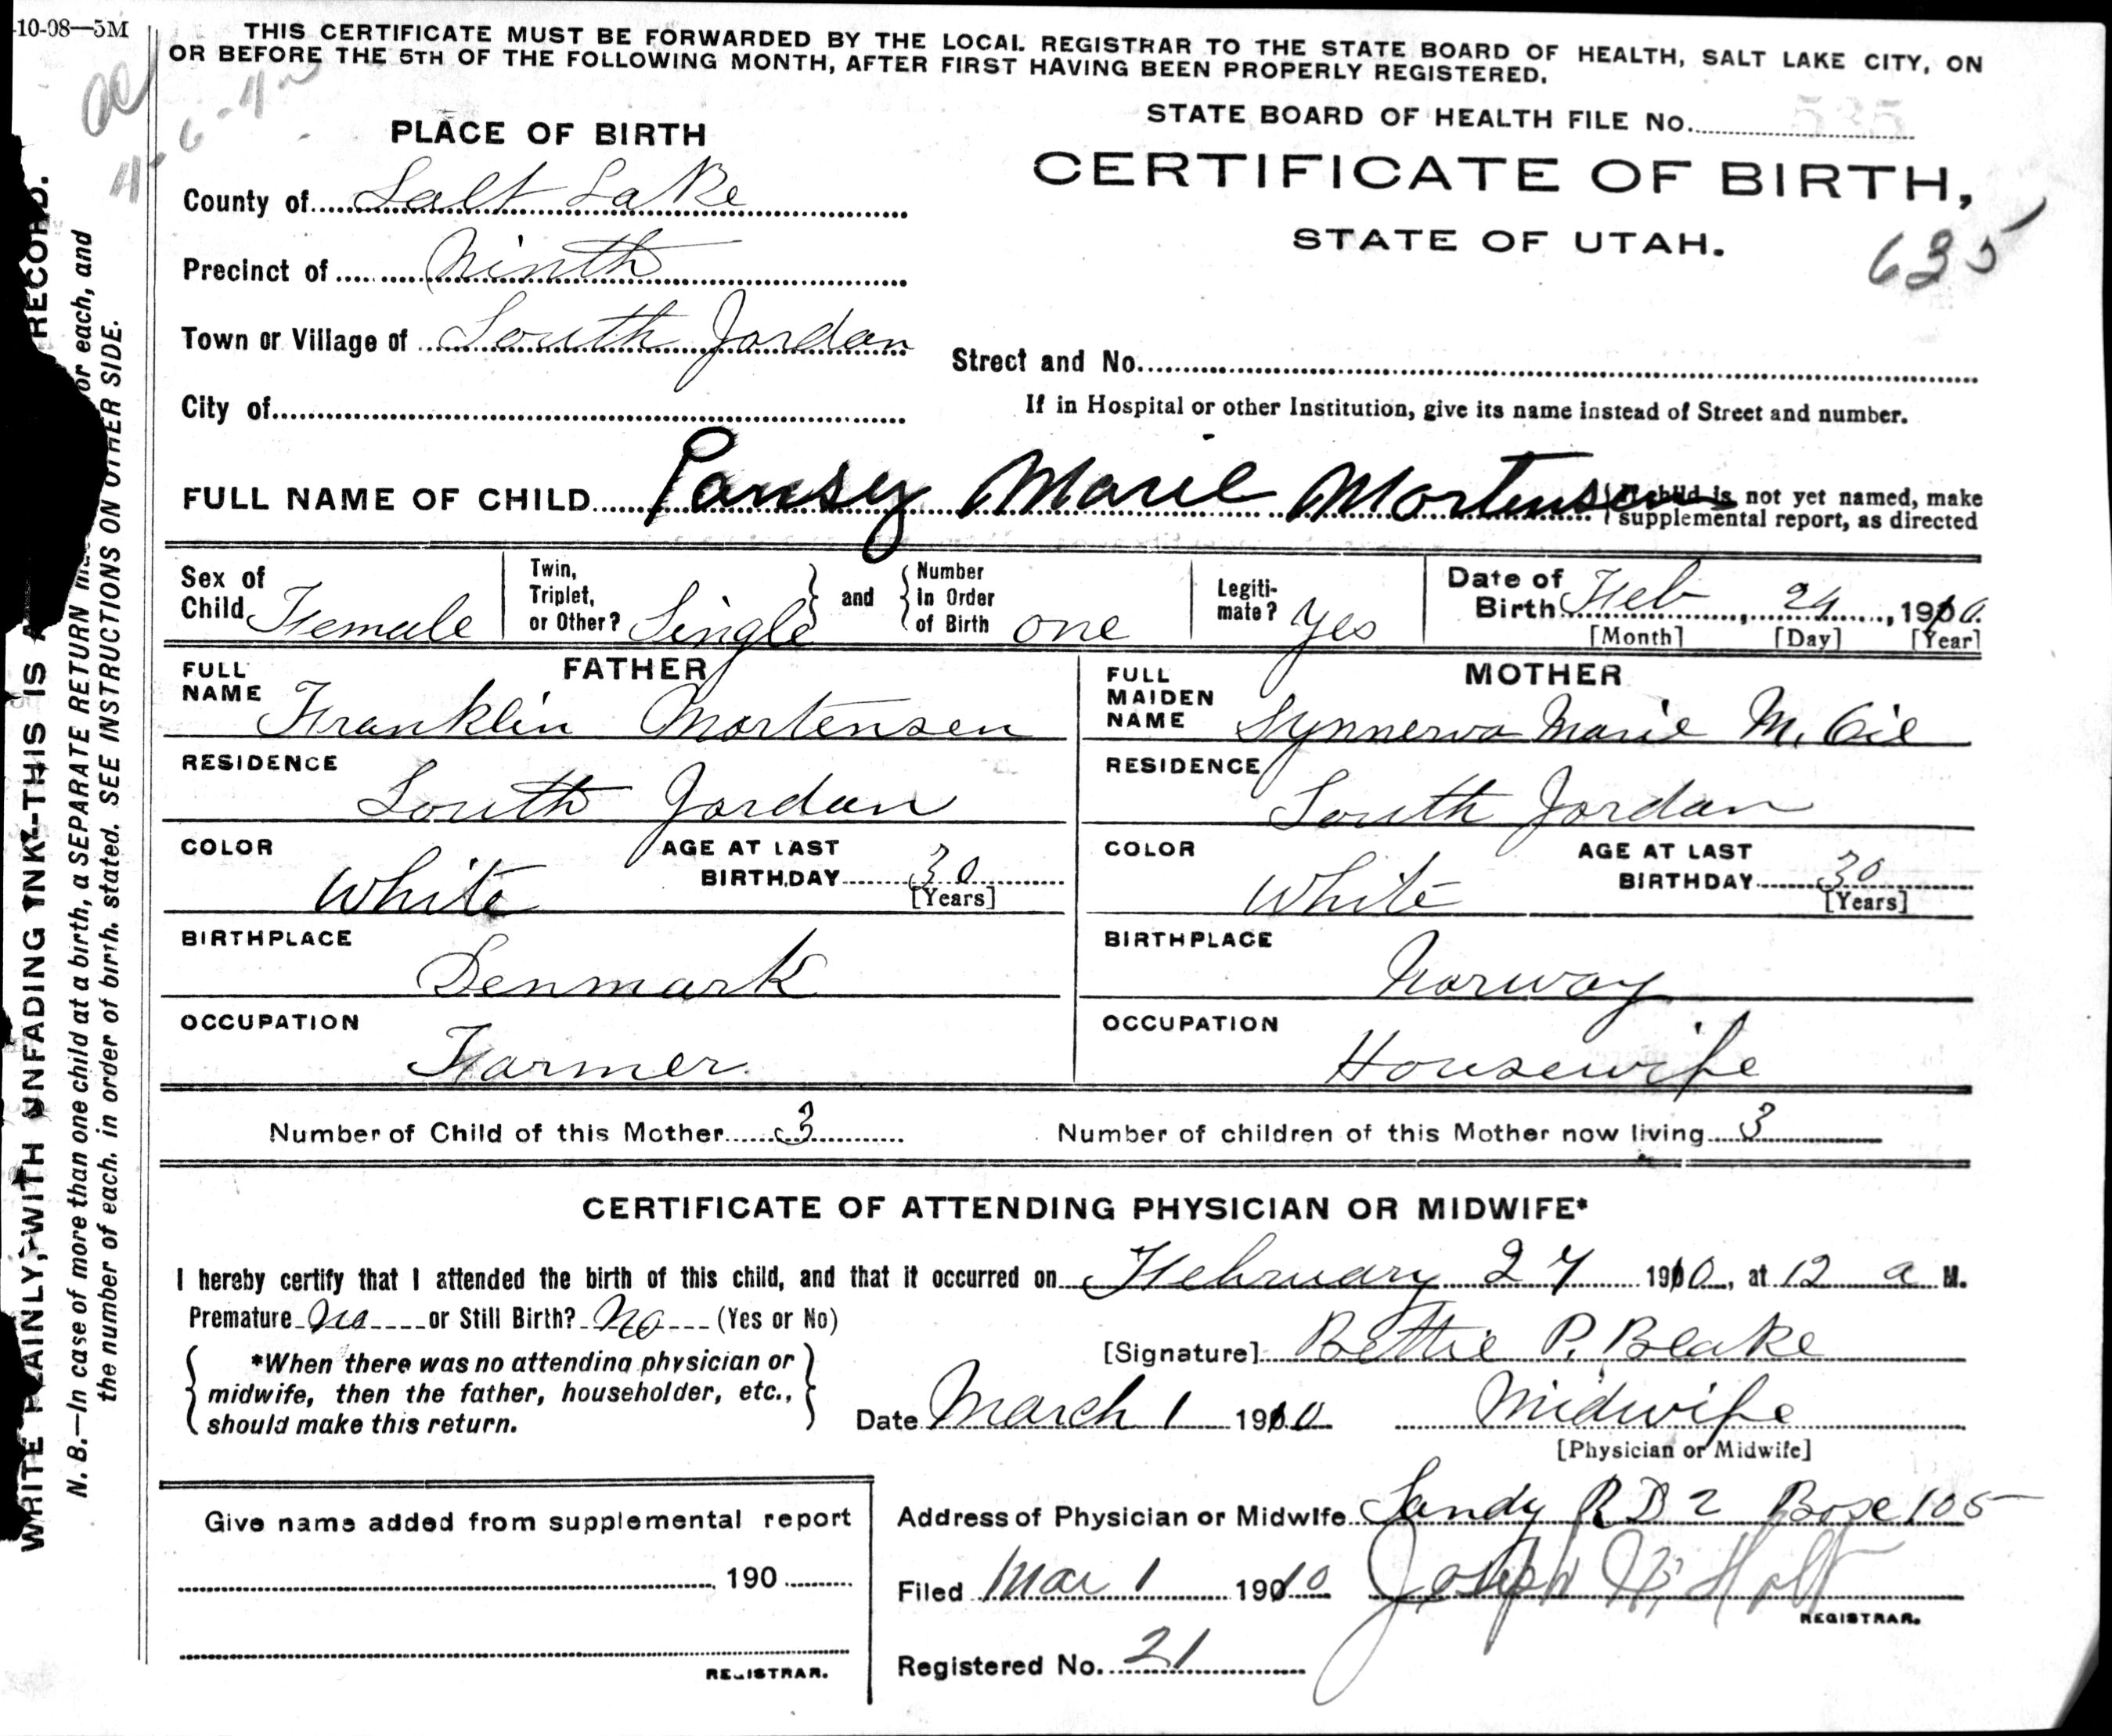 10-08—5M
THIS CERTIFICATE MUST BE FORWARDED BY THE LOCAL REGISTRAR TO THE STATE BOARD OF HEALTH, SALT LAKE CITY, ON
OR BEFORE THE 5TH OF THE FOLLOWING MONTH, AFTER FIRST HAVING BEEN PROPERLY REGISTERED.
STATE BOARD OF HEALTH FILE No. 535
PLACE OF BIRTH
CERTIFICATE OF BIRTH,
STATE OF UTAH.
635
County of Salt Lake
Precinct of Ninth
Town or Village of South Jordan
Street and No.
City of
If in Hospital or other Institution, give its name instead of Street and number.
FULL NAME OF CHILD Pansey Marie Mortensen
child is not yet named, make
supplemental report, as directed
Sex of Child Female
Twin, Triplet, or Other? Single and Number In Order of Birth one
Legiti-mate? Yes
Date of Birth Feb 24, 1910
[Month] [Day] [Year]
FATHER
FULL NAME Franklin Mortensen
RESIDENCE South Jordan
COLOR White
AGE AT LAST BIRTHDAY 30
[Years]
BIRTHPLACE Denmark
OCCUPATION Farmer
MOTHER
FULL MAIDEN NAME Synnerva Marie M.
RESIDENCE South Jordan
COLOR White
AGE AT LAST BIRTHDAY 30
[Years]
BIRTHPLACE Norway
OCCUPATION Housewife
Number of Child of this Mother 3
Number of children of this Mother now living 3
CERTIFICATE OF ATTENDING PHYSICIAN OR MIDWIFE*
I hereby certify that I attended the birth of this child, and that it occurred on February 24 1910, at 12 a M.
Premature No or Still Birth? No (Yes or No)
[Signature] Bettie P. Blake
*When there was no attending physician or
midwife, then the father, householder, etc.,
should make this return.
Date March 1 1910
Midwife
[Physician or Midwife]
Give name added from supplemental report
190
REGISTRAR.
Address of Physician or Midwife Sandy R D 2 Box 105
Filed Mar 1 1910 Joseph W. Holt
REGISTRAR.
Registered No. 21
WRITE PLAINLY, WITH UNFADING INK—THIS IS A RECORD.
N. B.—In case of more than one child at a birth, a SEPARATE RETURN for each, and
the number of each, in order of birth, stated. SEE INSTRUCTIONS ON OTHER SIDE.